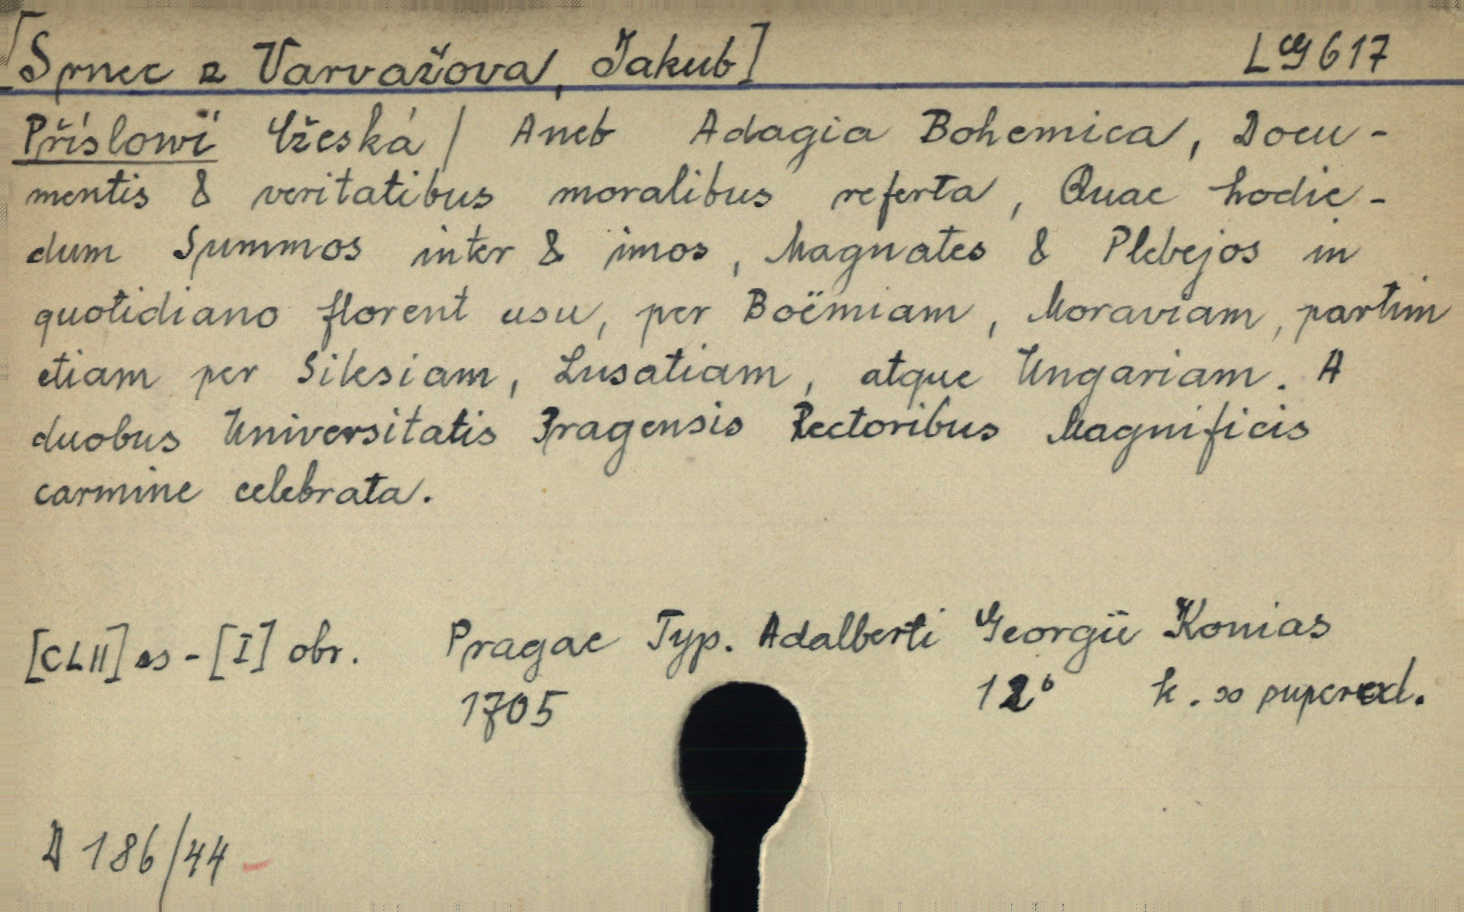 [Srnec z Varvažova, Jakub]
Lg 617
Příslowï Cžeská / Aneb Adagia Bohemica, Docu-
mentis & veritatibus moralibus referta, Quae hodie-
dum Summos inter & imos, Magnates & Plebejos in
quotidiano florent usu, per Boëmiam, Moraviam, partim
etiam per Silesiam, Lusatiam, atque Ungariam. A
duobus Universitatis Pragensis Rectoribus Magnificis
carmine celebrata.
[CLII] - [I] obr. Pragae Typ. Adalberti Georgii Konias
1705 12° k. s superexl.
D 186/44 -